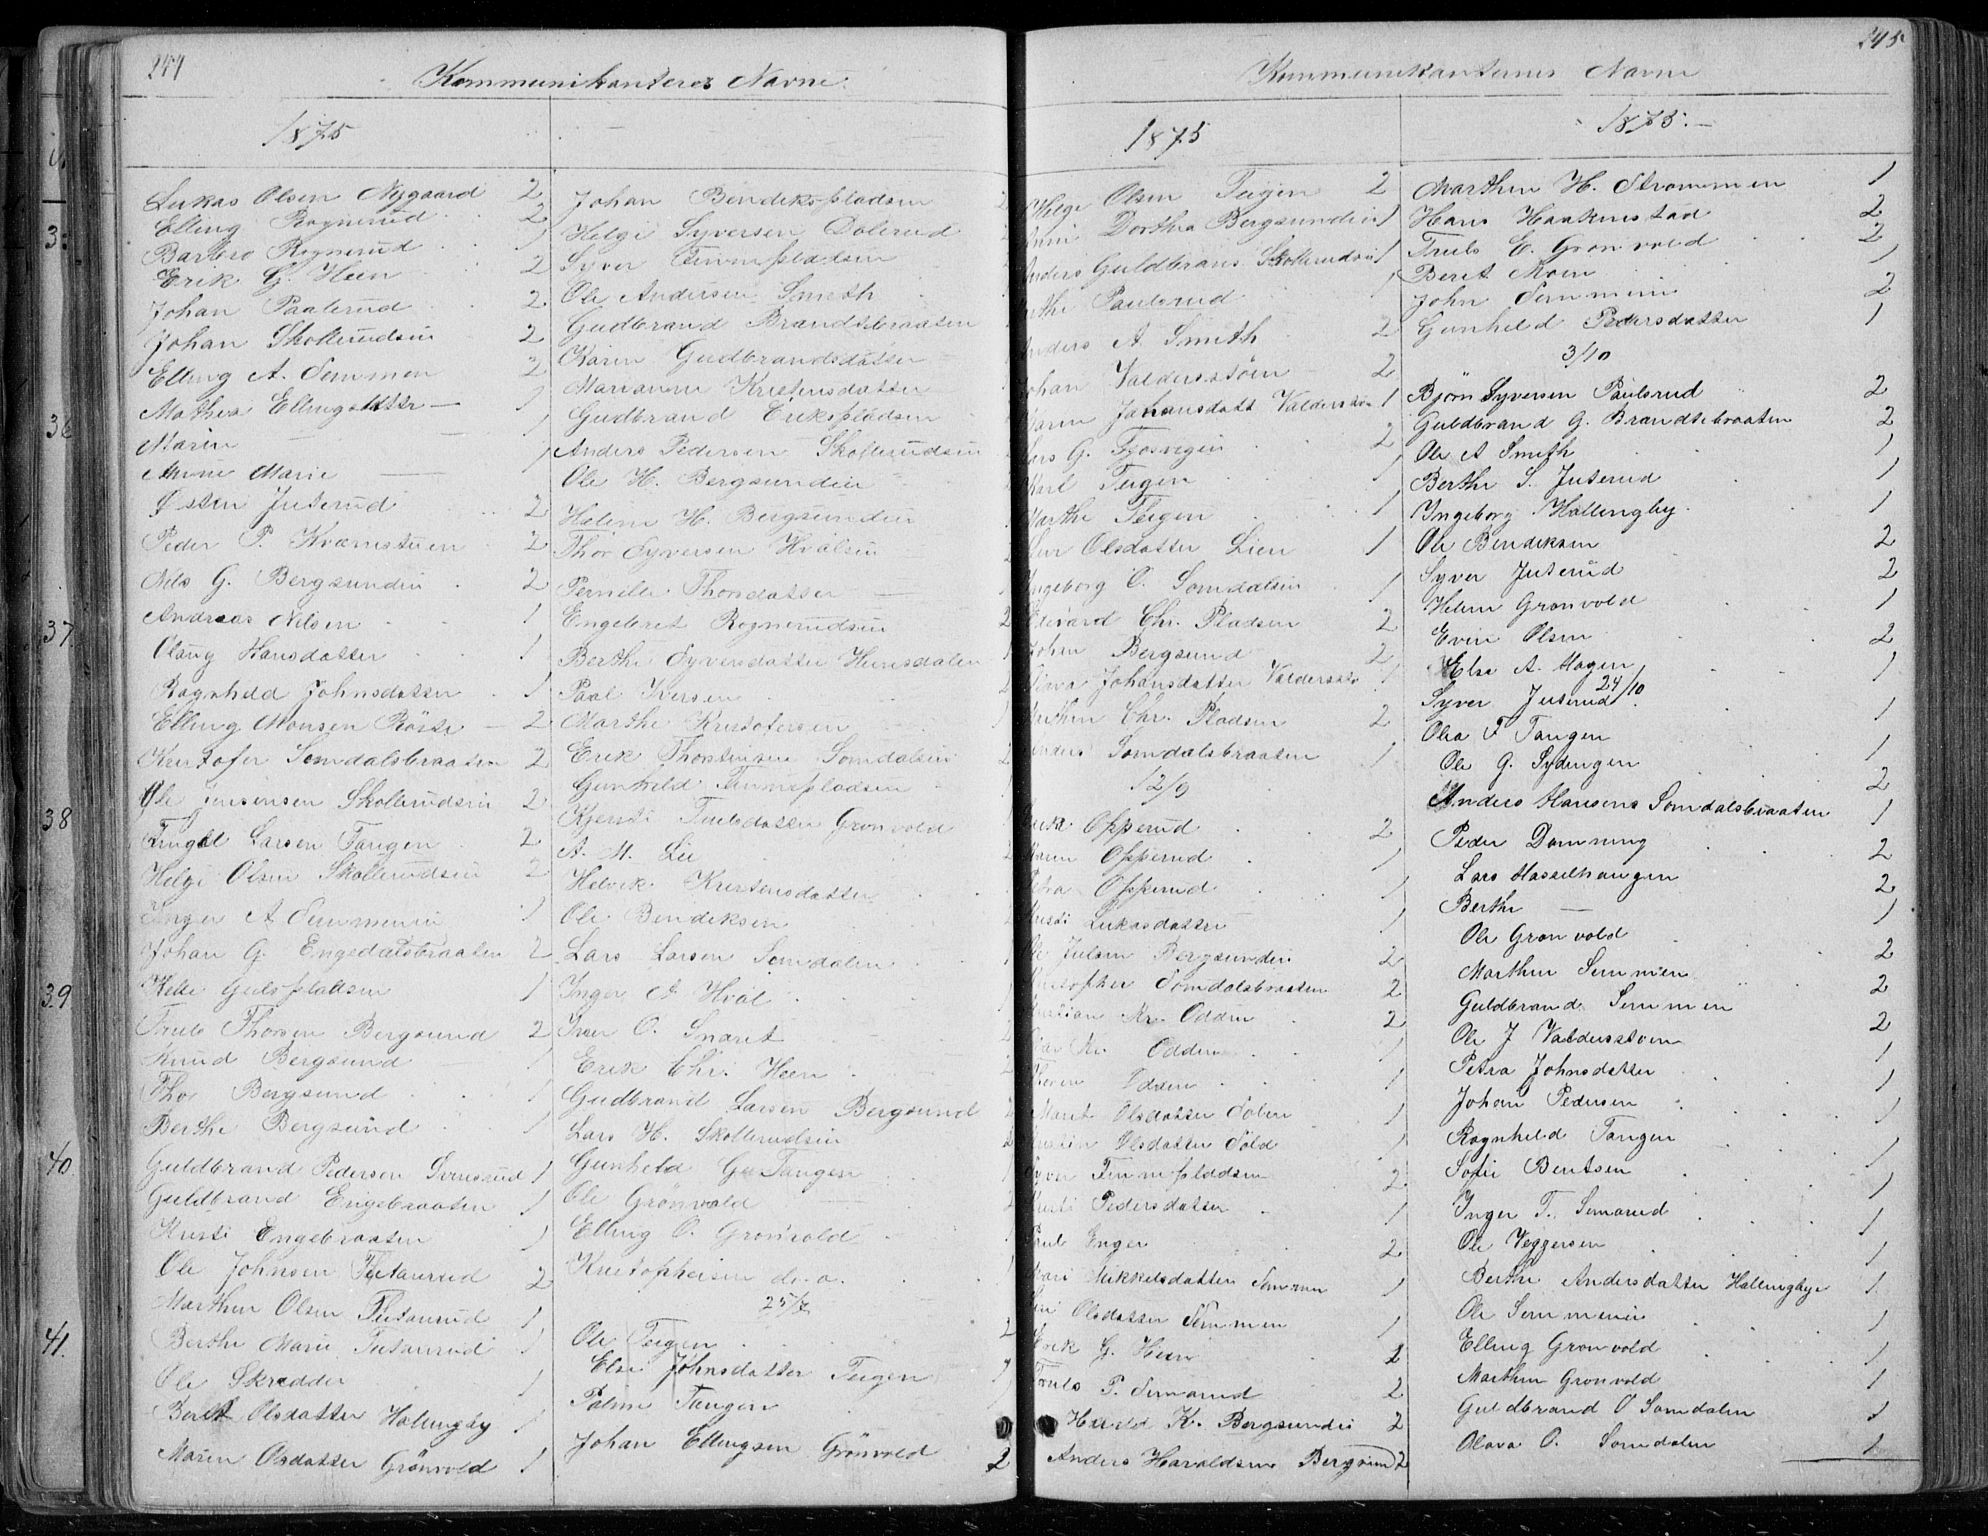 244
Kommunikanteres Navne.
1875
Lukas Olsen Nygaard 2
Elling Rognerud 2
Barbro Rognerud 1
Erik G. Heen 2
Johan Paalerud 2
Johan Skollerudsin 2
Elling A. Semmen 2
Mathea Ellingsdtter — 1
Maria — — 1
Anne Marie — 1
Østen Juterud 2
Peder P. Kvernstuen 2
Nils G. Bergsundin 2
Andreas Nilsen 1
Olaug Hansdatter 1
Ragnhild Johnsdatter 1
Elling Monsen Röste 2
Kristofer Somdalsbraaten 2
Ole Jensensen Skollerudsin 2
Larsen Tangen 2
Helge Olsen Skollerudsin 2
Inger A Semmenin 1
Johan G. Engedalsbraaten 2
Pladsen 1
Truls Thorsen Bergsund 2
Knud Bergsund 1
Tho Bergsund 1
Berthe Bergsund 1
Guldbrand Pedersen 1
Guldbrand Engebraaten 1
Kristi Engebraaten 1
Ole Johnsen Tutanrud 2
Marthin Olsen Tutanrud 1
Berthe Marie Tutanrud 1
Ole Skrædder 1
Berit Olsdatter Hallingby 1
Maren Olsdatter Grönvold 1
Johan Bendikspladsen
Helge Syversen Dolerud
Syver Finnspladsen
Ole Andersen Smeth
Gudbrand Brandtbraaten
Karen Gudbrandsdatter
Marianne Kristensdatter
Gudbrand Erikspladsen
Anders Pedersen Skollerudsin
Ole H. Bergsundin
Helene H. Bergsundin
Thor Syversen Hvalsin
Pernille Thorsdatter
Engebret Rognerudsin
Berthe Syversdatter Hunsdalen
Paal Iversen
Marthe Kristofersen
Erik Thorstensen Somdalsin
Gunhild Finnspladsen
Kjersti Trulsdatter Gronvold
A. M. Lie
Helvik Kristensdatter
Ole Bendiksen
Lars Larsen Somdalen
Inger A Hval
Iver O. Snaret
Erik Chr. Heen
Gudbrand Larsen Bergsund
Lars H. Skollerudsin
Gunhild G. Tangen
Ole Grönvold
Elling O. Gronvold
Kristopheisen do. o.
25/7
Ole Teigen
Else Johnsdatter Teigen
Palme Tangen
Johan Ellingsen Grönvold 2
245
Kommunikanternes Navne
1875
Helge Olsen Teigen 2
Dorthea Bergsundin 1
Anders Guldbrans Skollerudsin 1
Paulsrud 1
Anders A Smeth 2
Johan Valdersstöen 2
Karen Johansdatt Valdersstöen 1
Lars G. Fjosvigen 2
Karl Teigen 1
Marthe Teigen 1
Olsdatter Lien 1
Ingeborg O. Somdalsin 1
Edvard Chr. Pladsen 2
Johan Bergsund 2
Olava Johansdatter Valderssto 1
Marthin Chr. Pladsen 2
Anders Somdalsbraaten 1
12/9
Opperud 2
Maren Opperud 1
Petra Opperud 1
Kristi Lukasdatter 1
Ole Julsen Bergsundin 2
Kristopher Somdalsbraaten 2
Kristian Kr. Odden 2
Kr. Odden 1
Odden 1
Marit Olsdatter Solen 1
Kristin Olsdatter Söld 1
Syver Finnspladsen 2
Kristi Pedersdatter 1
Truls Enger 2
Kari Mikkelsdatter Semmen 1
Olsdatter Semmen 1
Erik G. Heen 2
Truls P. Semarud 2
Harald K. Bergsundin 2
Anders Haraldsen Bergsun 2
1875.
Marthin H. Strommen 1
Hans Haakenstad 2
Truls E. Gronvold 2
Berit Moen 1
John Semmen 2
Gunhild Pedersdatter 1
3/10
Bjørn Syversen Paulsrud 2
Guldbrand G. Brandtebraaten 2
Ole A Smeth 1
Berthe S. Juterud 1
Ingeborg Hallingby 1
Ole Bendiksen 2
Syver Juterud 2
Helene Gronvold 1
Even Olsen 2
Else A. Hagen 1
24/10
Syver Juterud 1
Olia F Tangen 1
Ole G. Sydengen 2
Anders Hansens Somdalsbraaten 1
Peder Domning 2
Lars Hasselhaugen 2
Berthe — 1
Ole Gronvold 2
Marthin Semmen 2
Guldbrand Semmen 2
Ole J Valdersstoen 1
Petra Johnsdatter 1
Johan Pedersen 1
Ragnhild Tangen 1
Sofie Bentsen 1
Inger T. Semarud 1
Ole Veggersen 1
Berthe Andersdatter Hallingbye 1
Ole Semmenin 1
Elling Gronvold 1
Marthin Gronvold 1
Guldbrand O Somdalen 1
Olava O. Somdalen 1
36
37.
38
39
40
41.